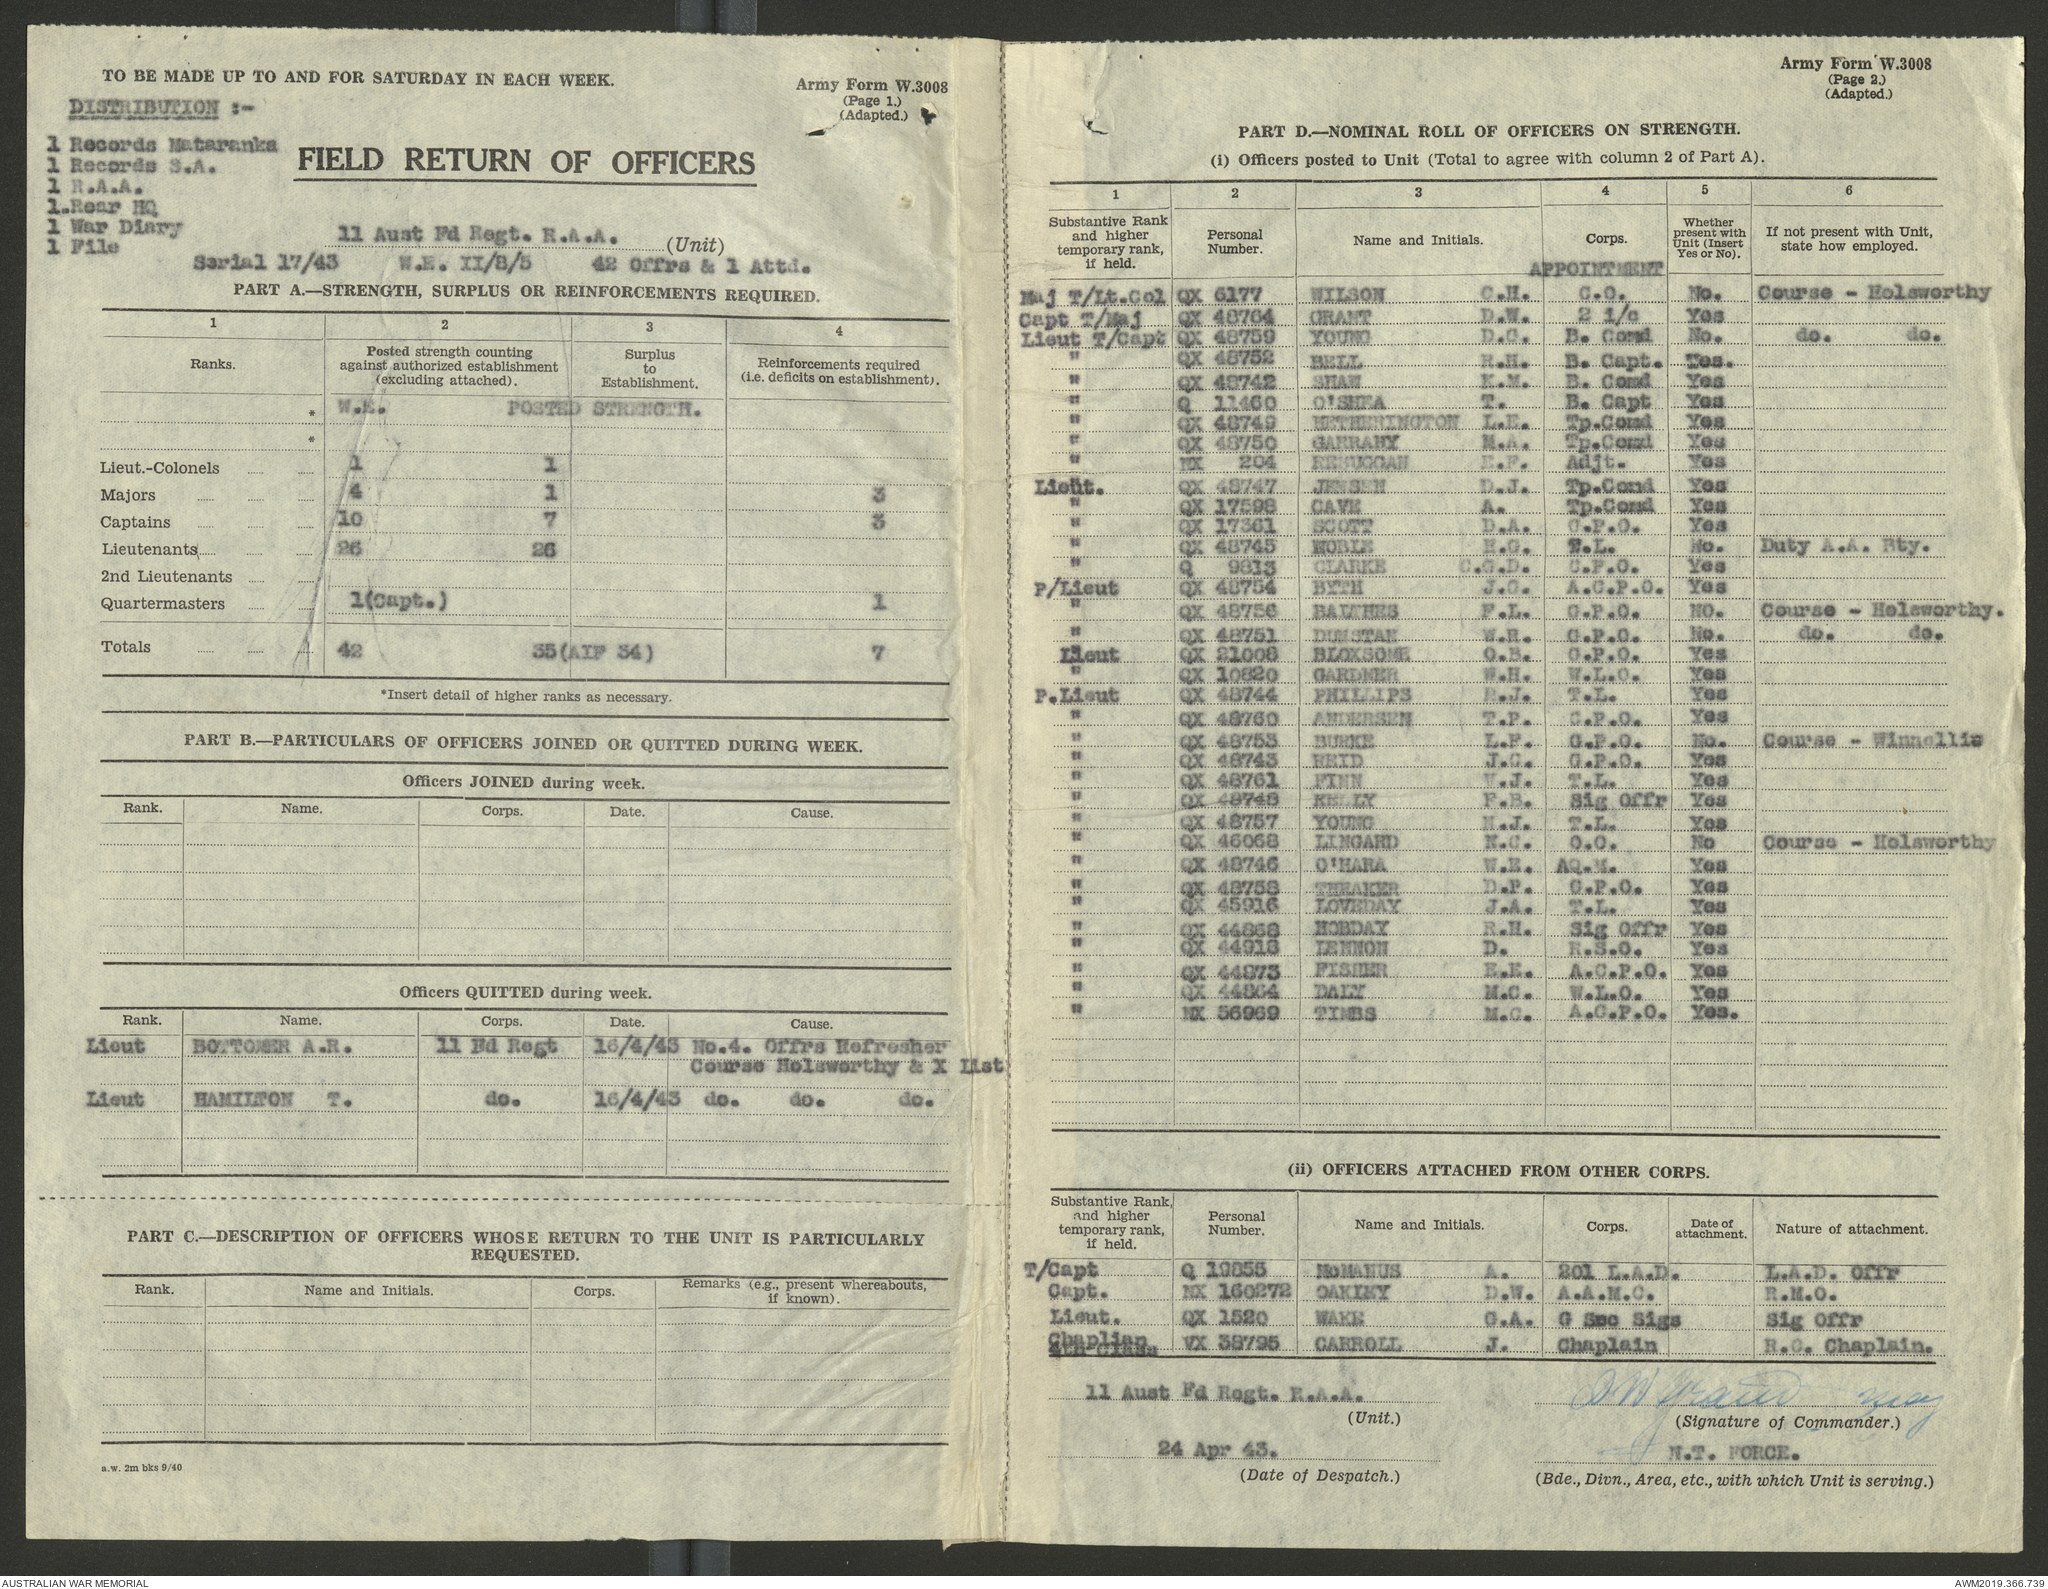 TO BE MADE UP TO AND FOR SATURDAY IN EACH WEEK.
Army Form W.3008
(Page 1.)
(Adapted.)
DISTRIBUTION :-
1 Records Mataranka
1 Records S.A.
1 R.A.A.
1.Rear HQ
1 War Diary
1 File
FIELD RETURN OF OFFICERS
11 Aust Fd Regt. R.A.A. (Unit)
Serial 17/43 W.E. II/8/5 42 Offrs & 1 Attd.
PART A.—STRENGTH, SURPLUS OR REINFORCEMENTS REQUIRED.
1 2 3 4
Ranks. Posted strength counting against authorized establishment (excluding attached). Surplus to Establishment. Reinforcements required (i.e. deficits on establishment).
* W.E. POSTED STRENGTH.
*
Lieut.-Colonels 1 1
Majors 4 1 3
Captains 10 7 3
Lieutenants 26 26
2nd Lieutenants
Quartermasters 1(Capt.) 1
Totals 42 35(AIF 34) 7
*Insert detail of higher ranks as necessary.
PART B.—PARTICULARS OF OFFICERS JOINED OR QUITTED DURING WEEK.
Officers JOINED during week.
Rank. Name. Corps. Date. Cause.
Officers QUITTED during week.
Rank. Name. Corps. Date. Cause.
Lieut BOTTOMER A.R. 11 Fd Regt 16/4/43 No.4. Offrs Refresher
Course Holsworthy & X List
Lieut HAMILTON T. do. 16/4/43 do. do. do.
PART C.—DESCRIPTION OF OFFICERS WHOSE RETURN TO THE UNIT IS PARTICULARLY
REQUESTED.
Rank. Name and Initials. Corps. Remarks (e.g., present whereabouts, if known).
a.w. 2m bks 9/40
Army Form W.3008
(Page 2.)
(Adapted.)
PART D.—NOMINAL ROLL OF OFFICERS ON STRENGTH.
(i) Officers posted to Unit (Total to agree with column 2 of Part A).
1 2 3 4 5 6
Substantive Rank and higher temporary rank, if held. Personal Number. Name and Initials. Corps. Whether present with Unit (Insert Yes or No). If not present with Unit, state how employed.
APPOINTMENT
Maj T/Lt.Col QX 6177 WILSON C.H. C.O. No. Course - Holsworthy
Capt T/Maj QX 48764 GRANT D.W. 2 i/c Yes
Lieut T/Capt QX 48759 YOUNG D.C. B. Comd No. do. do.
" QX 48752 BELL R.H. B. Capt. Yes.
" QX 48742 SHAW K.M. B. Comd Yes
" Q 11460 O'SHEA T. B. Capt Yes
" QX 48749 HETHERINGTON L.E. Tp.Comd Yes
" QX 48750 GARRAHY M.A. Tp.Comd Yes
" NX 204 REHUGGAN E.F. Adjt. Yes
Lieut. QX 48747 JENSEN D.J. Tp.Comd Yes
" QX 17598 CAVE A. Tp.Comd Yes
" QX 17361 SCOTT D.A. C.P.O. Yes
" QX 48745 NOBLE H.G. T.L. No. Duty A.A. Bty.
" Q 9813 CLARKE C.G.D. C.P.O. Yes
P/Lieut QX 48754 BYTH J.C. A.C.P.O. Yes
" QX 48756 BALTHES F.L. G.P.O. NO. Course - Holsworthy.
" QX 48751 DUNSTAN W.R. G.P.O. No. do. do.
Lieut QX 21008 BLOXSOME O.B. G.P.O. Yes
" QX 10820 GARDNER W.H. W.L.O. Yes
P.Lieut QX 48744 PHILLIPS R.J. T.L. Yes
" QX 48760 ANDERSEN T.P. C.P.O. Yes
" QX 48753 BURKE L.F. G.P.O. No. Course - Winnellie
" QX 48743 REID J.C. G.P.O. Yes
" QX 48761 FINN V.J. T.L. Yes
" QX 48748 KELLY F.B. Sig Offr Yes
" QX 48757 YOUNG N.J. T.L. Yes
" QX 46068 LINGARD K.C. O.O. No Course - Holsworthy
" QX 48746 O'HARA W.E. AQ.M. Yes
" QX 48758 THEAKER D.P. G.P.O. Yes
" QX 45916 LOVEDAY J.A. T.L. Yes
" QX 44868 HOBDAY R.H. Sig Offr Yes
" QX 44918 LENNON D. R.S.O. Yes
" QX 44873 FISHER E.E. A.C.P.O. Yes
" QX 44864 DALY M.C. W.L.O. Yes
" NX 56969 TIMBS M.C. A.C.P.O. Yes.
(ii) OFFICERS ATTACHED FROM OTHER CORPS.
Substantive Rank, and higher temporary rank, if held. Personal Number. Name and Initials. Corps. Date of attachment. Nature of attachment.
T/Capt Q 19855 McMANUS A. 201 L.A.D. L.A.D. Offr
Capt. NX 160272 OAKLEY D.W. A.A.M.C. R.M.O.
Lieut. QX 1520 WAKE G.A. G Sec Sigs Sig Offr
Chaplian VX 38795 CARROLL J. Chaplain R.C. Chaplain.
4th Class
11 Aust Fd Regt. R.A.A.
(Unit.)
DW Grant Maj
(Signature of Commander.)
24 Apr 43.
(Date of Despatch.)
N.T. FORCE.
(Bde., Divn., Area, etc., with which Unit is serving.)
AUSTRALIAN WAR MEMORIAL
AWM2019.366.739